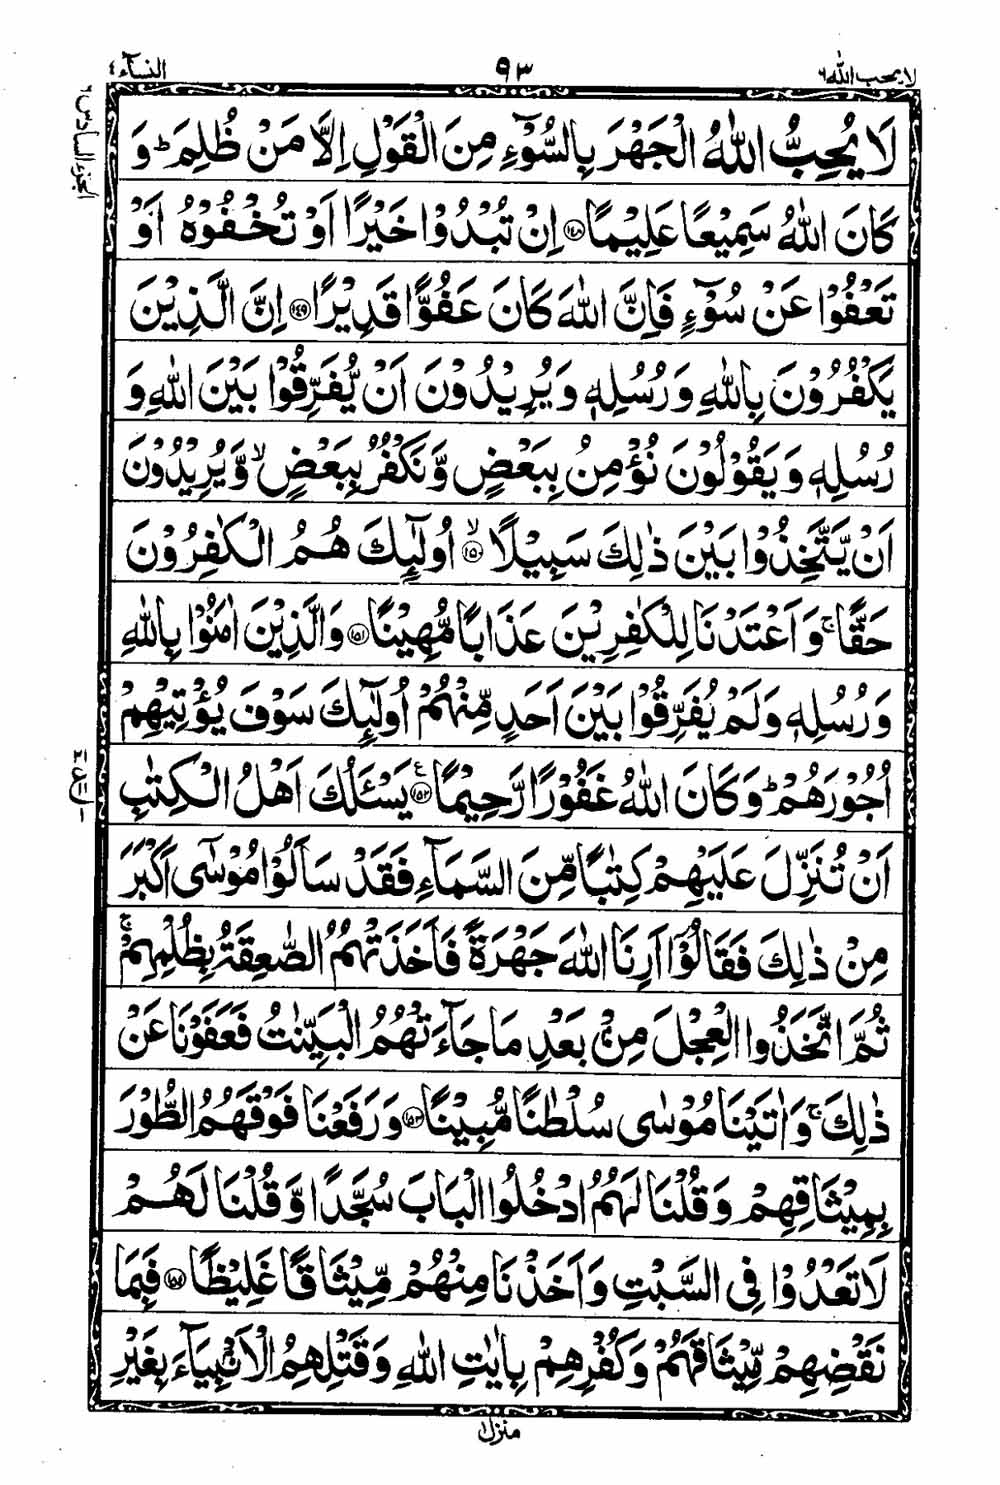 لا یحب الله ٦
٩٣
النسآء ٤
الجزء السادس ٦
لَا یُحِبُّ اللّٰهُ الْجَهْرَ بِالسُّوْٓءِ مِنَ الْقَوْلِ اِلَّا مَنْ ظُلِمَ ؕ وَ
كَانَ اللّٰهُ سَمِیْعًا عَلِیْمًا ﴿۱٤۸﴾ اِنْ تُبْدُوْا خَیْرًا اَوْ تُخْفُوْهُ اَوْ
تَعْفُوْا عَنْ سُوْٓءٍ فَاِنَّ اللّٰهَ كَانَ عَفُوًّا قَدِیْرًا ﴿۱٤۹﴾ اِنَّ الَّذِیْنَ
یَكْفُرُوْنَ بِاللّٰهِ وَ رُسُلِهٖ وَ یُرِیْدُوْنَ اَنْ یُّفَرِّقُوْا بَیْنَ اللّٰهِ وَ
رُسُلِهٖ وَ یَقُوْلُوْنَ نُؤْمِنُ بِبَعْضٍ وَّ نَكْفُرُ بِبَعْضٍ ۙ وَّ یُرِیْدُوْنَ
اَنْ یَّتَّخِذُوْا بَیْنَ ذٰلِكَ سَبِیْلًا ﴿۱٥۰﴾ ۙ اُولٰٓئِكَ هُمُ الْكٰفِرُوْنَ
حَقًّا ۚ وَ اَعْتَدْنَا لِلْكٰفِرِیْنَ عَذَابًا مُّهِیْنًا ﴿۱٥۱﴾ وَ الَّذِیْنَ اٰمَنُوْا بِاللّٰهِ
وَ رُسُلِهٖ وَ لَمْ یُفَرِّقُوْا بَیْنَ اَحَدٍ مِّنْهُمْ اُولٰٓئِكَ سَوْفَ یُؤْتِیْهِمْ
اُجُوْرَهُمْ ؕ وَ كَانَ اللّٰهُ غَفُوْرًا رَّحِیْمًا ﴿۱٥۲﴾ ع یَسْئَلُكَ اَهْلُ الْكِتٰبِ
اَنْ تُنَزِّلَ عَلَیْهِمْ كِتٰبًا مِّنَ السَّمَآءِ فَقَدْ سَاَلُوْا مُوْسٰۤی اَكْبَرَ
مِنْ ذٰلِكَ فَقَالُوْۤا اَرِنَا اللّٰهَ جَهْرَةً فَاَخَذَتْهُمُ الصّٰعِقَةُ بِظُلْمِهِمْ ۚ
ثُمَّ اتَّخَذُوا الْعِجْلَ مِنْۢ بَعْدِ مَا جَآءَتْهُمُ الْبَیِّنٰتُ فَعَفَوْنَا عَنْ
ذٰلِكَ ۚ وَ اٰتَیْنَا مُوْسٰی سُلْطٰنًا مُّبِیْنًا ﴿۱٥۳﴾ وَ رَفَعْنَا فَوْقَهُمُ الطُّوْرَ
بِمِیْثَاقِهِمْ وَ قُلْنَا لَهُمُ ادْخُلُوا الْبَابَ سُجَّدًا وَّ قُلْنَا لَهُمْ
لَا تَعْدُوْا فِی السَّبْتِ وَ اَخَذْنَا مِنْهُمْ مِّیْثَاقًا غَلِیْظًا ﴿۱٥٤﴾ فَبِمَا
نَقْضِهِمْ مِّیْثَاقَهُمْ وَ كُفْرِهِمْ بِاٰیٰتِ اللّٰهِ وَ قَتْلِهِمُ الْاَنْۢبِیَآءَ بِغَیْرِ
منزل ۱